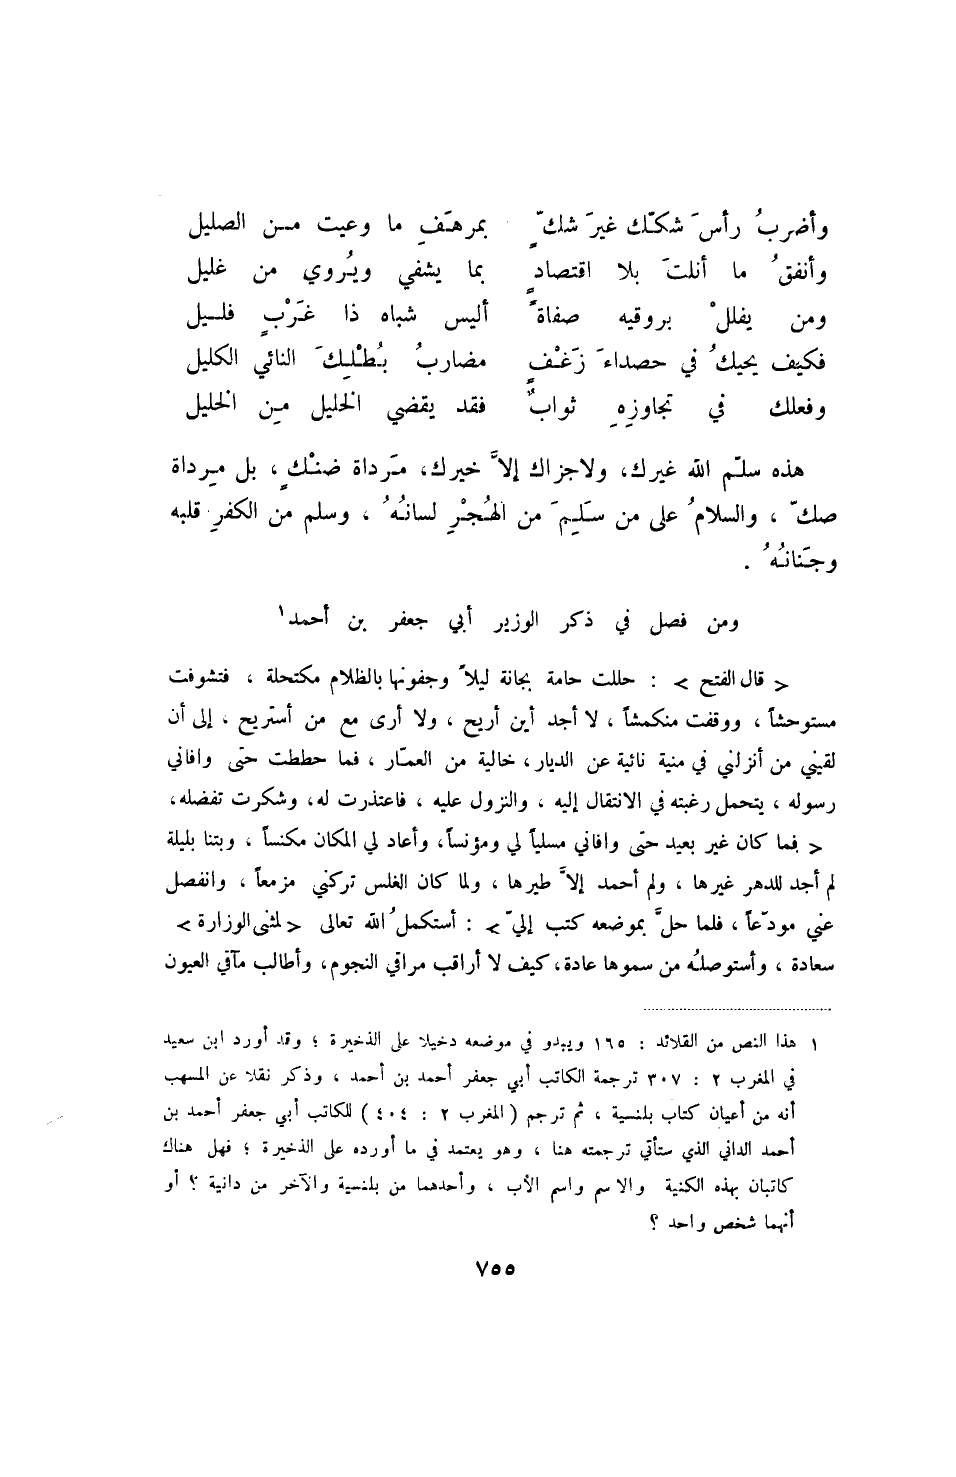 وأضربُ رأسَ شكّك غيرَ شكٍّ بمرهَفِ ما وعيت من الصليل
وأنفقُ ما أنلتَ بلا اقتصادٍ بما يشفي ويُروي من غليل
ومن يفللْ بروقيه صفاةً أليس شباه ذا غَرْبٍ فليل
فكيف يحيكُ في حصداءَ زَغْفٍ مضاربُ بُطْلِكَ النائي الكليل
وفعلك في تجاوزِهِ ثوابٌ فقد يقضي الخليل مِن الخليل
هذه سلّم الله غيرك، ولاجزاك إلاَّ خيرك، مَرداة ضنْكٍ، بل مِرداة
صكّ، والسلامُ على من سَلِيمَ من الهُجْرِ لسانُهُ، وسلم من الكفرِ قلبه
وجَنانُهُ.
ومن فصل في ذكر الوزير أبي جعفر بن أحمد١
< قال الفتح > : حللت حامة بجانة ليلاً وجفونها بالظلام مكتحلة، فتشوفت
مستوحشاً، ووقفت منكمشاً، لا أجد أين أريح، ولا أرى مع من أستريح، إلى أن
لقيني من أنزلني في منية نائية عن الديار، خالية من العمّار، فما حططت حتى وافاني
رسوله، يتحمل رغبته في الانتقال إليه، والنزول عليه، فاعتذرت له، وشكرت تفضله،
< فما كان غير بعيد حتّى وافاني مسلياً لي ومؤنساً، وأعاد لي المكان مكنساً، وبتنا بليلة
لم أجد للدهر غيرها، ولم أحمد إلاَّ طيرها، ولما كان الغلس تركني مزمعاً، وانفصل
عني مودّعاً، فلما حلَّ بموضعه كتب إليّ > : أستكملُ الله تعالى < لمثنى الوزارة >
سعادة، وأستوصلُه من سموها عادة، كيف لا أراقب مراقي النجوم، وأطالب مآقي العيون
١ هذا النص من القلائد : ١٦٥ ويبدو في موضعه دخيلا على الذخيرة ؛ وقد أورد ابن سعيد
في المغرب ٢ : ٣٠٧ ترجمة الكاتب أبي جعفر أحمد بن أحمد، وذكر نقلا عن المسهب
أنه من أعيان كتاب بلنسية، ثم ترجم (المغرب ٢ : ٤٠٤) للكاتب أبي جعفر أحمد بن
أحمد الداني الذي ستأتي ترجمته هنا، وهو يعتمد في ما أورده على الذخيرة ؛ فهل هناك
كاتبان بهذه الكنية والاسم واسم الأب، وأحدهما من بلنسية والآخر من دانية ؟ أو
أنهما شخص واحد ؟
٧٥٥